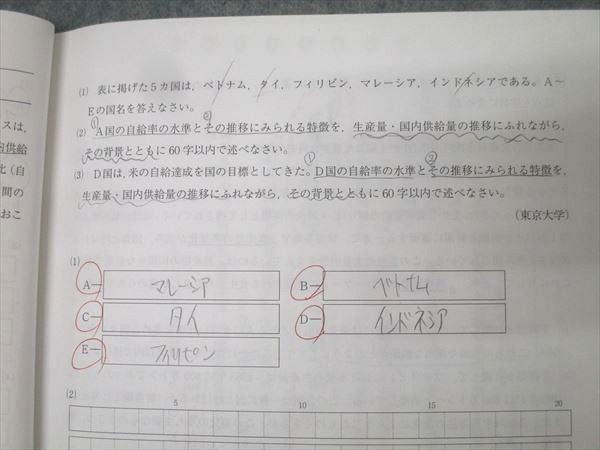 (1) 表に掲げた5カ国は，ベトナム，タイ，フィリピン，マレーシア，インドネシアである。A～
Eの国名を答えなさい。
① ②
(2) A国の自給率の水準とその推移にみられる特徴を，生産量・国内供給量の推移にふれながら，
その背景とともに60字以内で述べなさい。
① ②
(3) D国は，米の自給達成を国の目標としてきた。D国の自給率の水準とその推移にみられる特徴を，
生産量・国内供給量の推移にふれながら，その背景とともに60字以内で述べなさい。
（東京大学）
スは，
内供給
比（自
間の
おこ
(1)
A― マレーシア B― ベトナム
C― タイ D― インドネシア
E― フィリピン
(2)
5 10 15 20